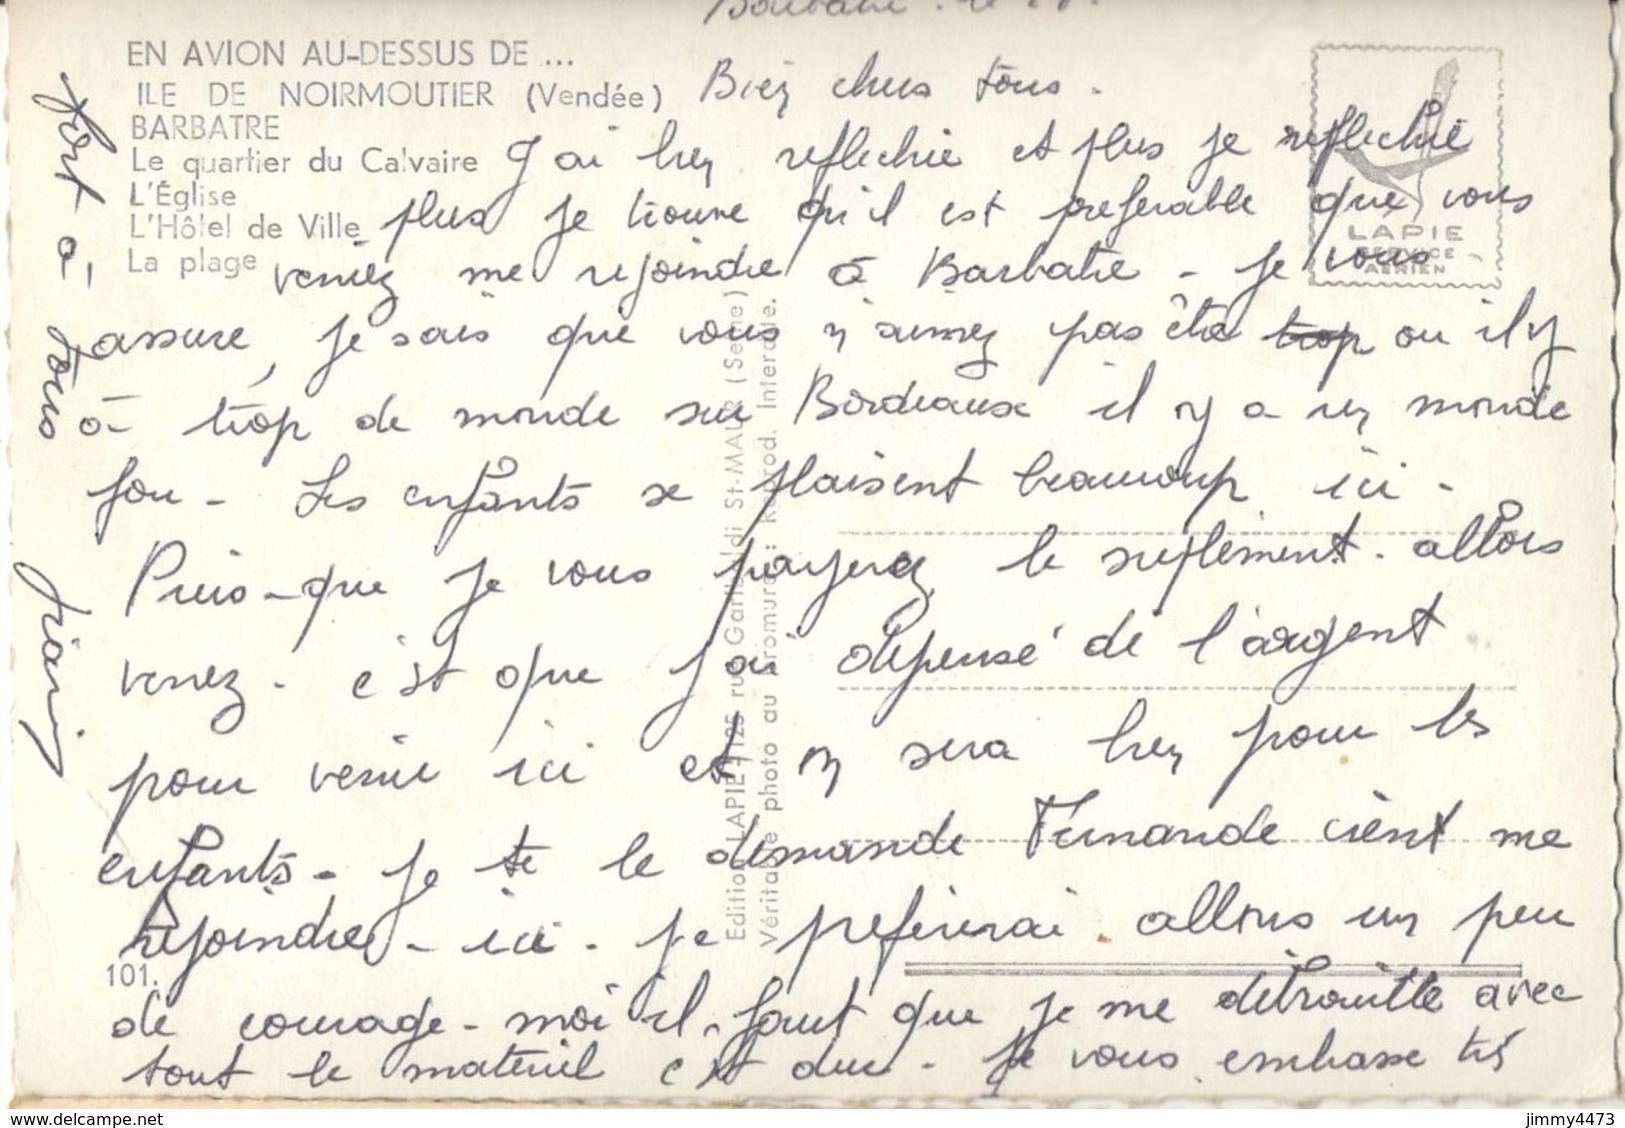 Barbatre. le
EN AVION AU-DESSUS DE ...
ILE DE NOIRMOUTIER (Vendée)
BARBATRE
Le quartier du Calvaire
L'Église
L'Hôtel de Ville
La plage
LAPIE
SERVICE
AERIEN
Bien chers tous.
J'ai bien reflechie et plus je reflechie
plus je trouve qu'il est preferable que vous
veniez me rejoindre à Barbatre - je vous
assure, je sais que vous n'aimez pas être trop ou il y
à trop de monde sur Bordeaux il n y a un monde
fou - Les enfants se plaisent beaucoup ici -
Puis-que je vous payerez le suplement. allors
venez - c'est que j'ai dépensé de l'argent
pour venir ici et n sera bien pour les
enfants - je te le demande Fernande vient me
rejoindre - ici - je prefererai. allons un peu
de courage - moi il faut que je me détrouille avec
tout le materiel c'est dur - Je vous embrasse trés
fort à tous
Edition LAPIE 125 rue Garibaldi St-MAUR (Seine)
Véritable photo au bromure : Reprod. Interdite.
101.
www.delcampe.net
jimmy4473